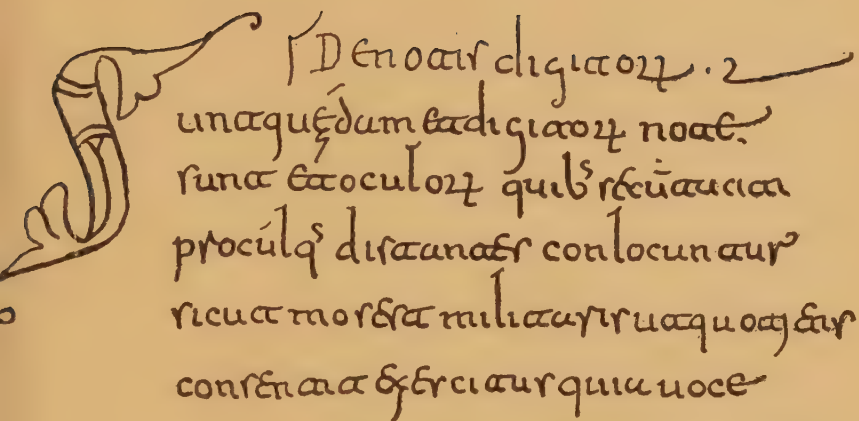 DE notis digitoꝝ.
Sunt quędam et digitoꝝ notae.
sunt et oculoꝝ quibˢ secū taciti
proculqˢ distantes conlocuntur
sicut mos est militaris ut quotjens
consentit exercitus quia uoce